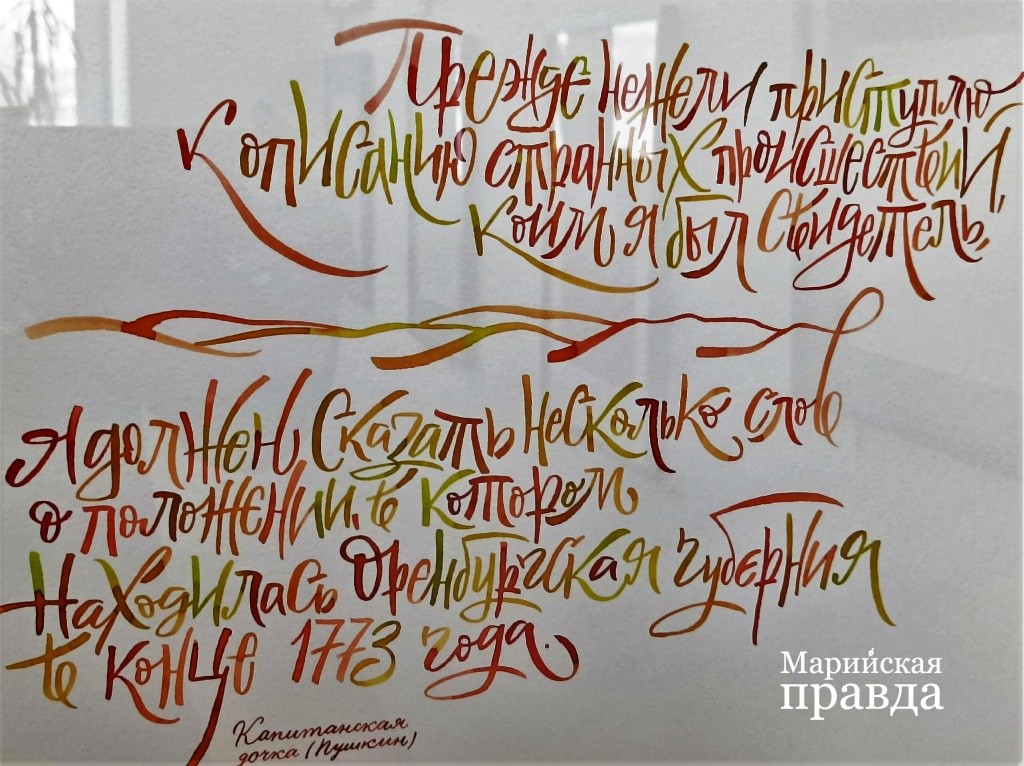 Прежде нежели приступлю
к описанию странных происшествий,
коим я был свидетель,
я должен сказать несколько слов
о положении, в котором
находилась Оренбургская губерния
в конце 1773 года.
Капитанская
дочка (Пушкин)
Марийская
правда